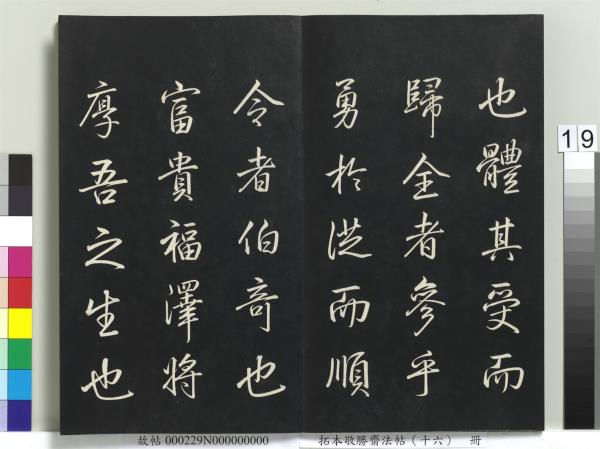 也體其受而
歸全者參乎
勇於從而順
令者伯奇也
富貴福澤將
厚吾之生也
19
故帖000229N000000000 拓本敬勝齋法帖(十六) 冊